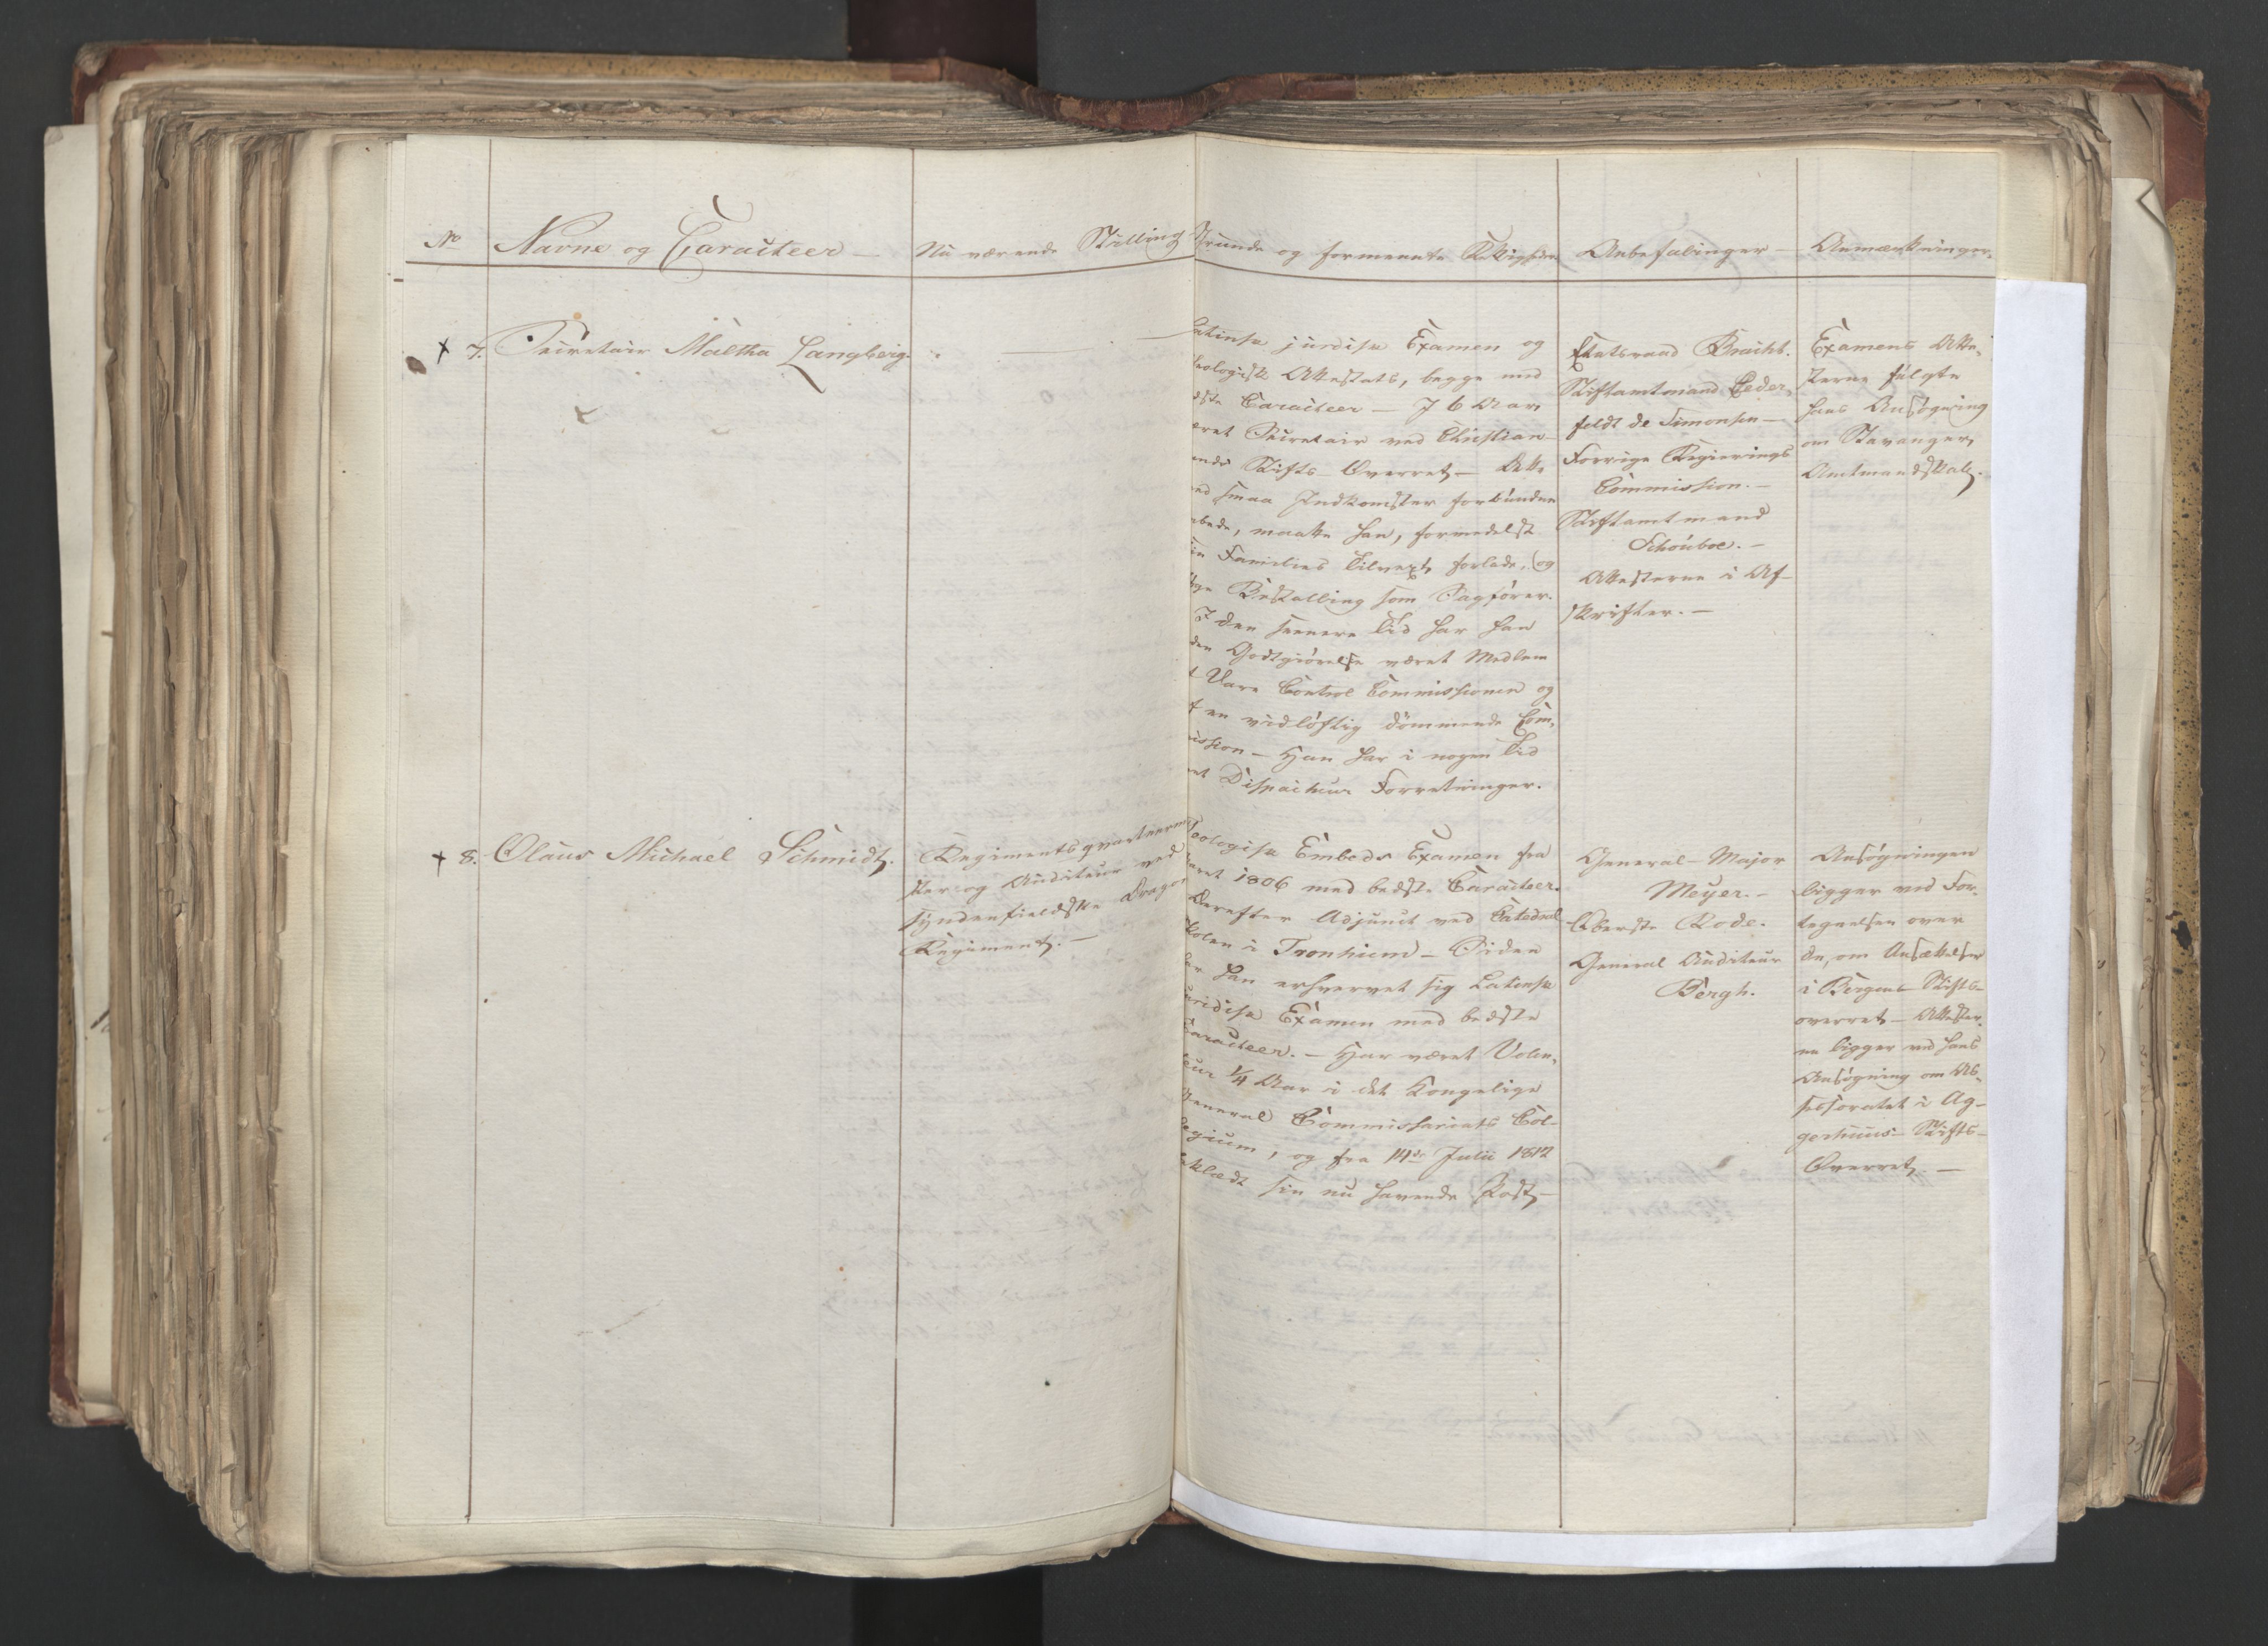 No
Navne og Caracteer —
Nu værende Stilling
Grunde og formeente Rettigheder
Anbefalinger —
Anmærkninger.
+ 7. Secretair Maltha Langberg.
Latinsk juridisk Examen og
theologisk Attestats, begge med
bedste Caracteer — I 6 Aar
været Secretair ved Christian-
sands Stifts Overret —
med smaa Indkomster forbundne
Embede, maatte han, formedelst
sin Families Tilvext, forlade, og
tage Bestalling som Sagfører.
I den seenere Tid har han
uden Godtgiørelse været Medlem
af Vare Control Commissionen og
af en vidløftig dømmende Com-
mission — Han har i nogen Tid
Dispacheur Forretninger.
Etatsraad Bracht.
Stiftamtmand Ceder-
feldt de Simonsen —
Forrige Regierings
Commission. —
Stiftamtmand
Schouboe. —
Attesterne i Af-
skrifter. —
Examens Atte-
sterne fulgte
hans Ansøgning
om Stavanger
Amtmandskab.
+ 8. Olaus Michael Schmidt.
Regimentsqvarteerme-
ster og Auditeur ved
syndenfieldske Dragon
Regiment. —
Teologisk Embeds Examen fra
Aaret 1806 med bedste Caracteer.
Derefter Adjunct ved Catedral
Skolen i Tronhiem — Siden
har han erhvervet sig Latinsk
juridisk Examen med bedste
Caracteer. — Har været Volon-
teur 1/4 Aar i det Kongelige
General Commissariats Col-
legium, og fra 14de Julii 1812
beklædt sin nu havende Post. —
General-Major
Meyer. —
Oberste Rode.
General Auditeur
Bergh.
Ansøgningen
ligger ved For-
tegnelsen over
de, om Ansættelser
i Bergens Stifts-
overret — Attester-
ne ligger ved hans
Ansøgning om As-
sessoratet i Ag-
gerhuus Stifts-
Overret —